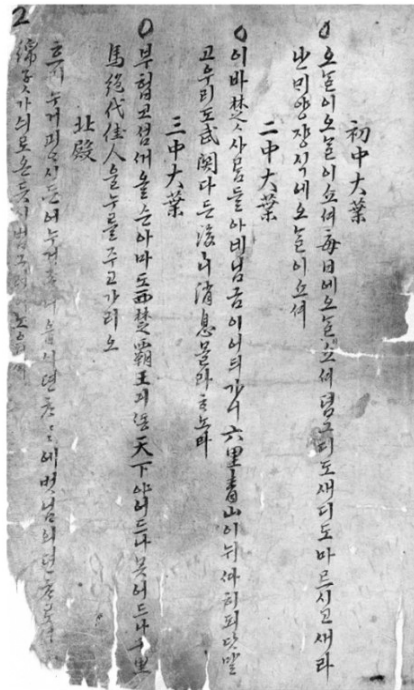 初中大葉
오ᄂᆞᆯ이오ᄂᆞᆯ이쇼셔每日에오ᄂᆞᆯ이쇼셔뎜그디도새디도마르시고새라
난ᄆᆡ양쟝식에오ᄂᆞᆯ이쇼셔
二中大葉
이바楚ㅅ사ᄅᆞᆷ들아네님금이어듸가니六里靑山이뉘ᄯᅡ히되닷말
고우리도武關다든後ㅣ니消息몰라ᄒᆞ노라
三中大葉
부헙고섬ᄭᅥ올슨아마도西楚覇王긔ᄯᅩᆼ天下야어드나못어드나千里
馬絶代佳人을누를주고가리오
北殿
흐리누거괴시든어누거
綿
2